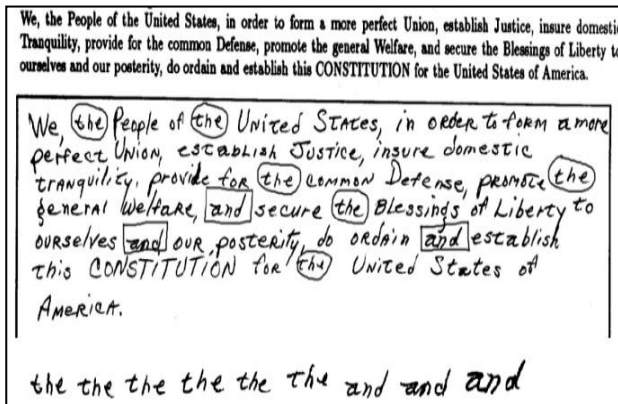 We, the People of the United States, in order to form a more perfect Union, establish Justice, insure domestic
Tranquility, provide for the common Defense, promote the general Welfare, and secure the Blessings of Liberty to
ourselves and our posterity, do ordain and establish this CONSTITUTION for the United States of America.
We, the People of the United States, in order to form a more
perfect Union, establish Justice, insure domestic
tranquility, provide for the common Defense, promote the
general Welfare, and secure the Blessings of Liberty to
ourselves and our posterity, do ordain and establish
this CONSTITUTION for the United States of
America.
the the the the the the and and and